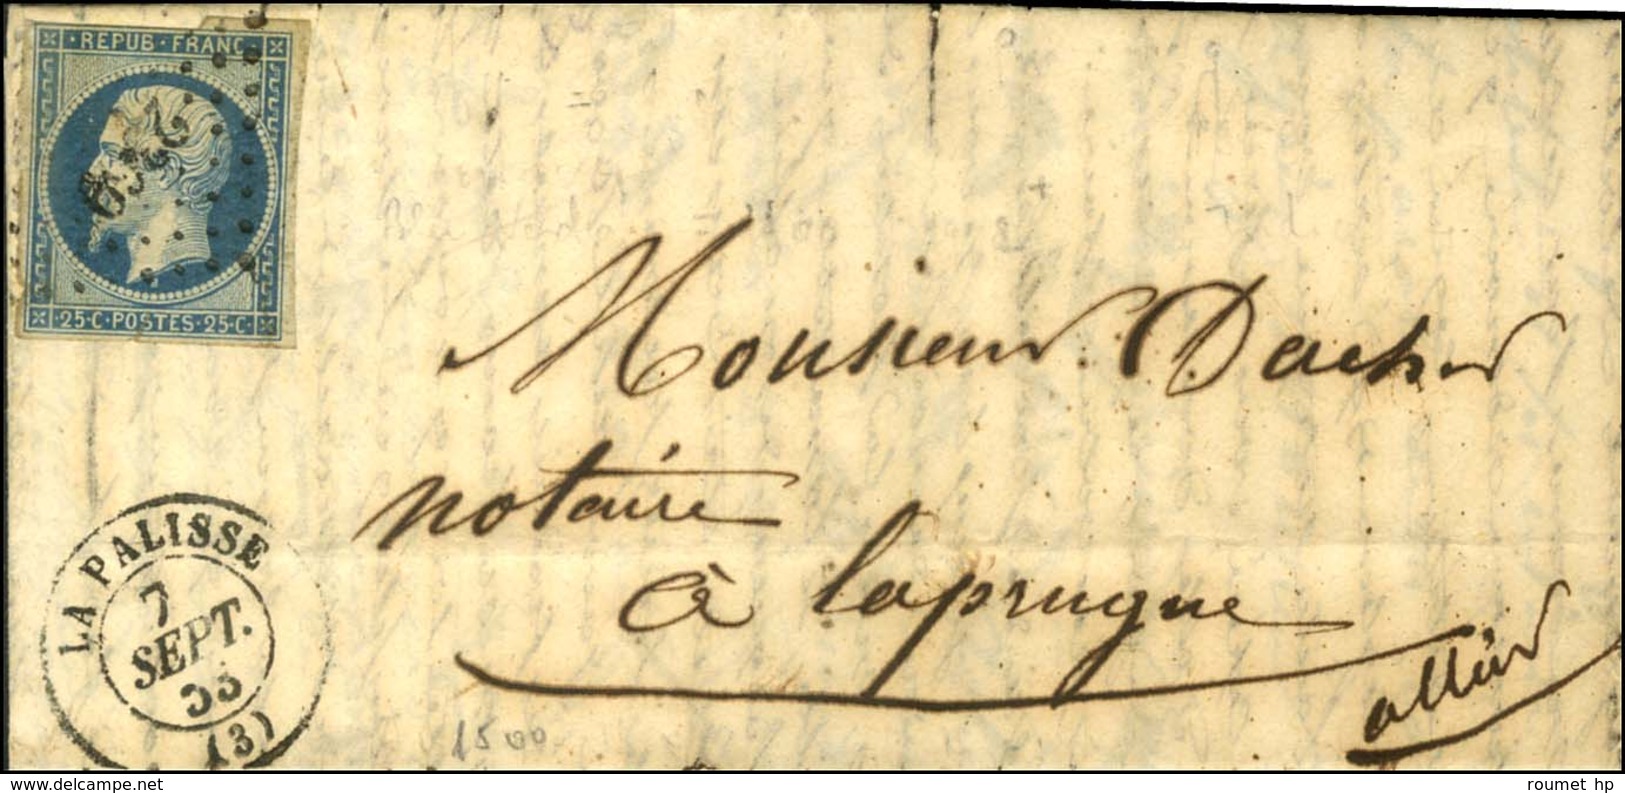 REPUB·FRANC
·25·C·POSTES·25·C·
LA PALISSE
7
SEPT.
53
(3)
Monsieur Dacher
notaire
à laprugne
allier
1500
roumet hp